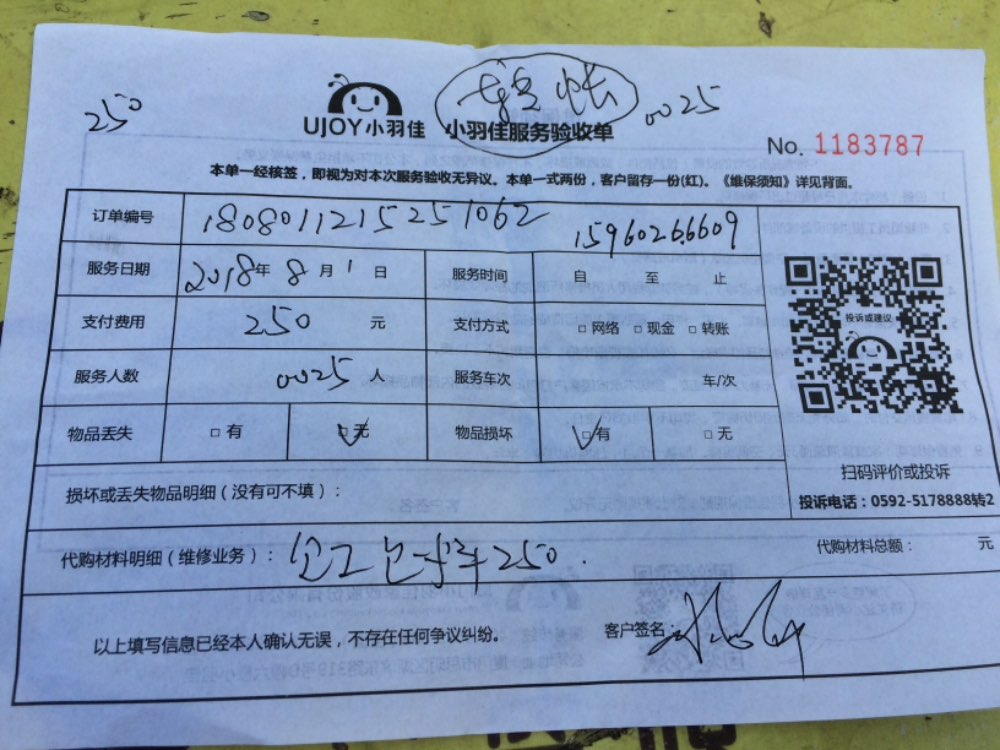 250
转帐
0025
UJOY小羽佳 小羽佳服务验收单
No. 1183787
本单一经核签，即视为对本次服务验收无异议。本单一式两份，客户留存一份(红)。《维保须知》详见背面。
订单编号 1808011215251062 15960266609
服务日期 2018年 8 月 1 日 服务时间 自 至 止
支付费用 250 元 支付方式 □网络 □现金 □转账
投诉或建议
服务人数 0025 人 服务车次 车/次
物品丢失 □有 □无 物品损坏 □有 □无
扫码评价或投诉
投诉电话：0592-5178888转2
损坏或丢失物品明细（没有可不填）：
代购材料明细（维修业务）： 250.
代购材料总额： 元
以上填写信息已经本人确认无误，不存在任何争议纠纷。
客户签名：